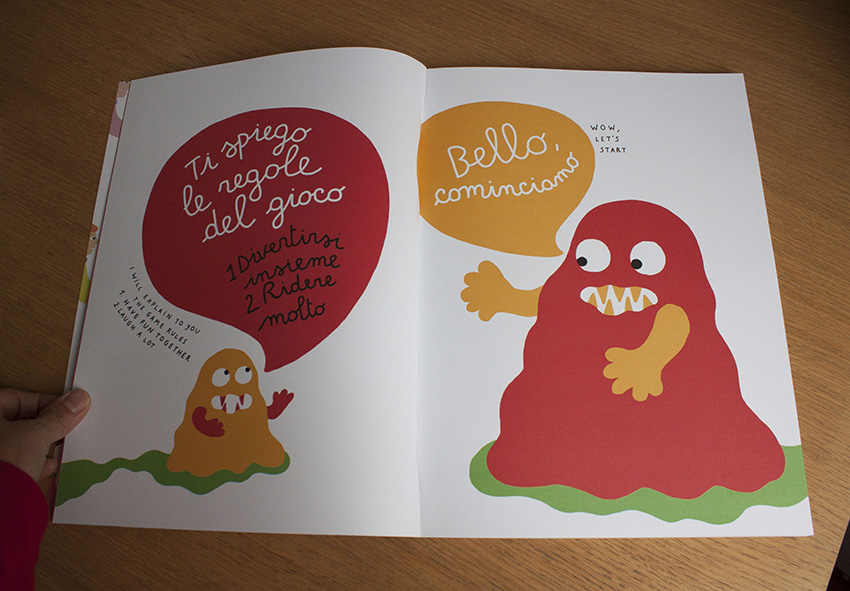 Ti spiego
le regole
del gioco
1 Divertirsi
insieme
2 Ridere
molto
I WILL EXPLAIN TO YOU
THE GAME RULES
1. HAVE FUN TOGETHER
2. LAUGH A LOT
Bello,
cominciamo
WOW,
LET'S
START